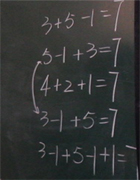 3+5-1=7
5-1+3=7
4+2+1=7
3-1+5=7
3-1+5-1+1=7